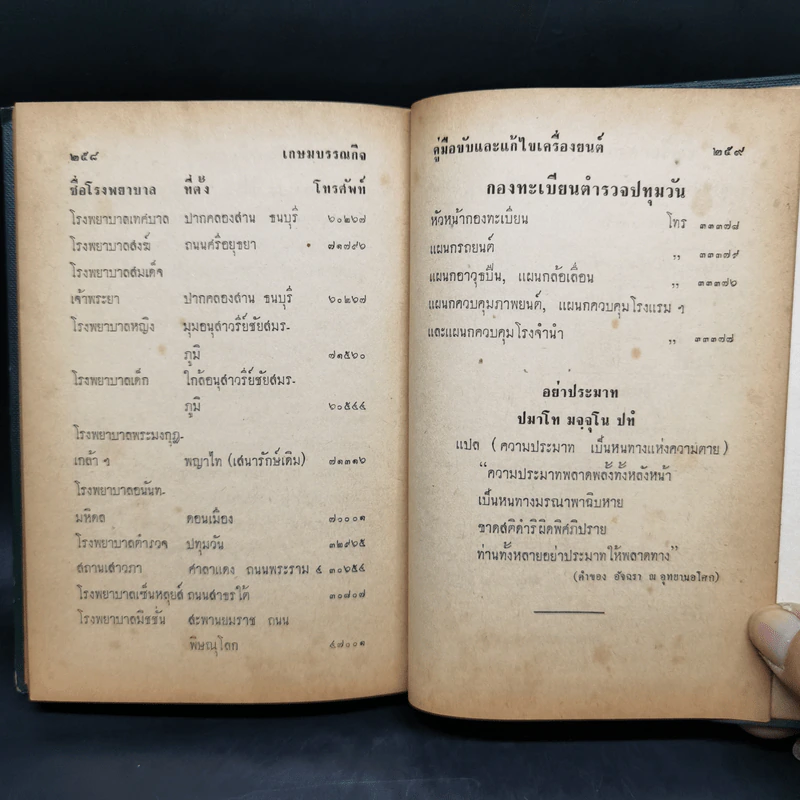 ๒๕๘ เกษมบรรณกิจ
ชื่อโรงพยาบาล ที่ตั้ง โทรศัพท์
โรงพยาบาลเทศบาล ปากคลองสาน ธนบุรี ๖๐๒๖๗
โรงพยาบาลสงฆ์ ถนนศรีอยุธยา ๗๑๗๙๖
โรงพยาบาลสมเด็จ
เจ้าพระยา ปากคลองสาน ธนบุรี ๖๐๒๖๗
โรงพยาบาลหญิง มุมอนุสาวรีย์ชัยสมร-
ภูมิ ๗๑๕๖๐
โรงพยาบาลเด็ก ใกล้อนุสาวรีย์ชัยสมร-
ภูมิ ๖๐๕๔๔
โรงพยาบาลพระมงกุฎ-
เกล้า ฯ พญาไท (เสนารักษ์เดิม) ๗๑๓๑๖
โรงพยาบาลอนันท-
มหิดล ดอนเมือง ๗๐๐๐๑
โรงพยาบาลตำรวจ ปทุมวัน ๓๒๙๖๕
สถานเสาวภา ศาลาแดง ถนนพระราม ๔ ๓๐๖๕๔
โรงพยาบาลเซ็นหลุยส์ ถนนสาธรใต้ ๓๐๗๐๗
โรงพยาบาลมิชชั่น สะพานยมราช ถนน
พิษณุโลก ๔๗๐๐๑
คู่มือขับและแก้ไขเครื่องยนต์ ๒๕๙
กองทะเบียนตำรวจปทุมวัน
หัวหน้ากองทะเบียน โทร ๓๓๓๗๘
แผนกรถยนต์ ,, ๓๓๓๗๙
แผนกอาวุธปืน, แผนกล้อเลื่อน ,, ๓๓๓๗๖
แผนกควบคุมภาพยนต์, แผนกควบคุมโรงแรม ฯ
และแผนกควบคุมโรงจำนำ ,, ๓๓๓๗๗
อย่าประมาท
ปมาโท มจฺจุโน ปทํ
แปล (ความประมาท เป็นหนทางแห่งความตาย)
“ความประมาทพลาดพลั้งทั้งหลังหน้า
เป็นหนทางมรณาพาฉิบหาย
ขาดสติดำริผิดพิศภิปราย
ท่านทั้งหลายอย่าประมาทให้พลาดทาง”
(คำของ อัจฉรา ณ อุทยานอโศก)